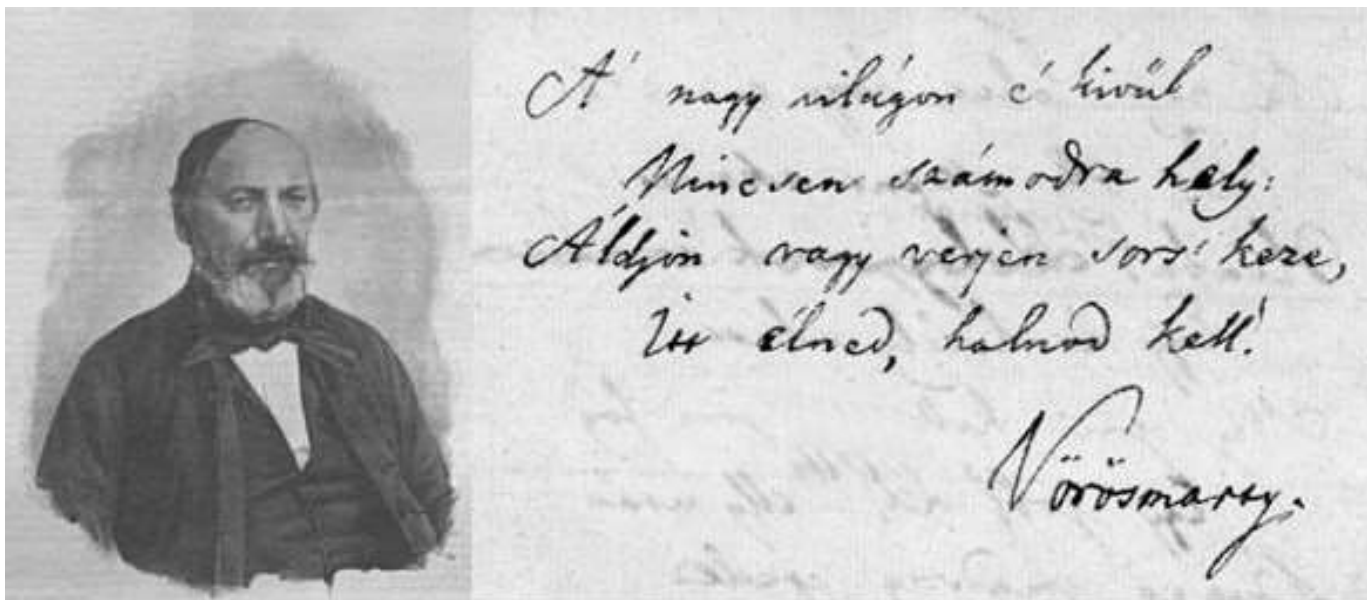 A' nagy világon e' kivül
Nincsen számodra hely:
Áldjon vagy verjen sors' keze,
Itt élned, halnod kell!
Vörösmarty.